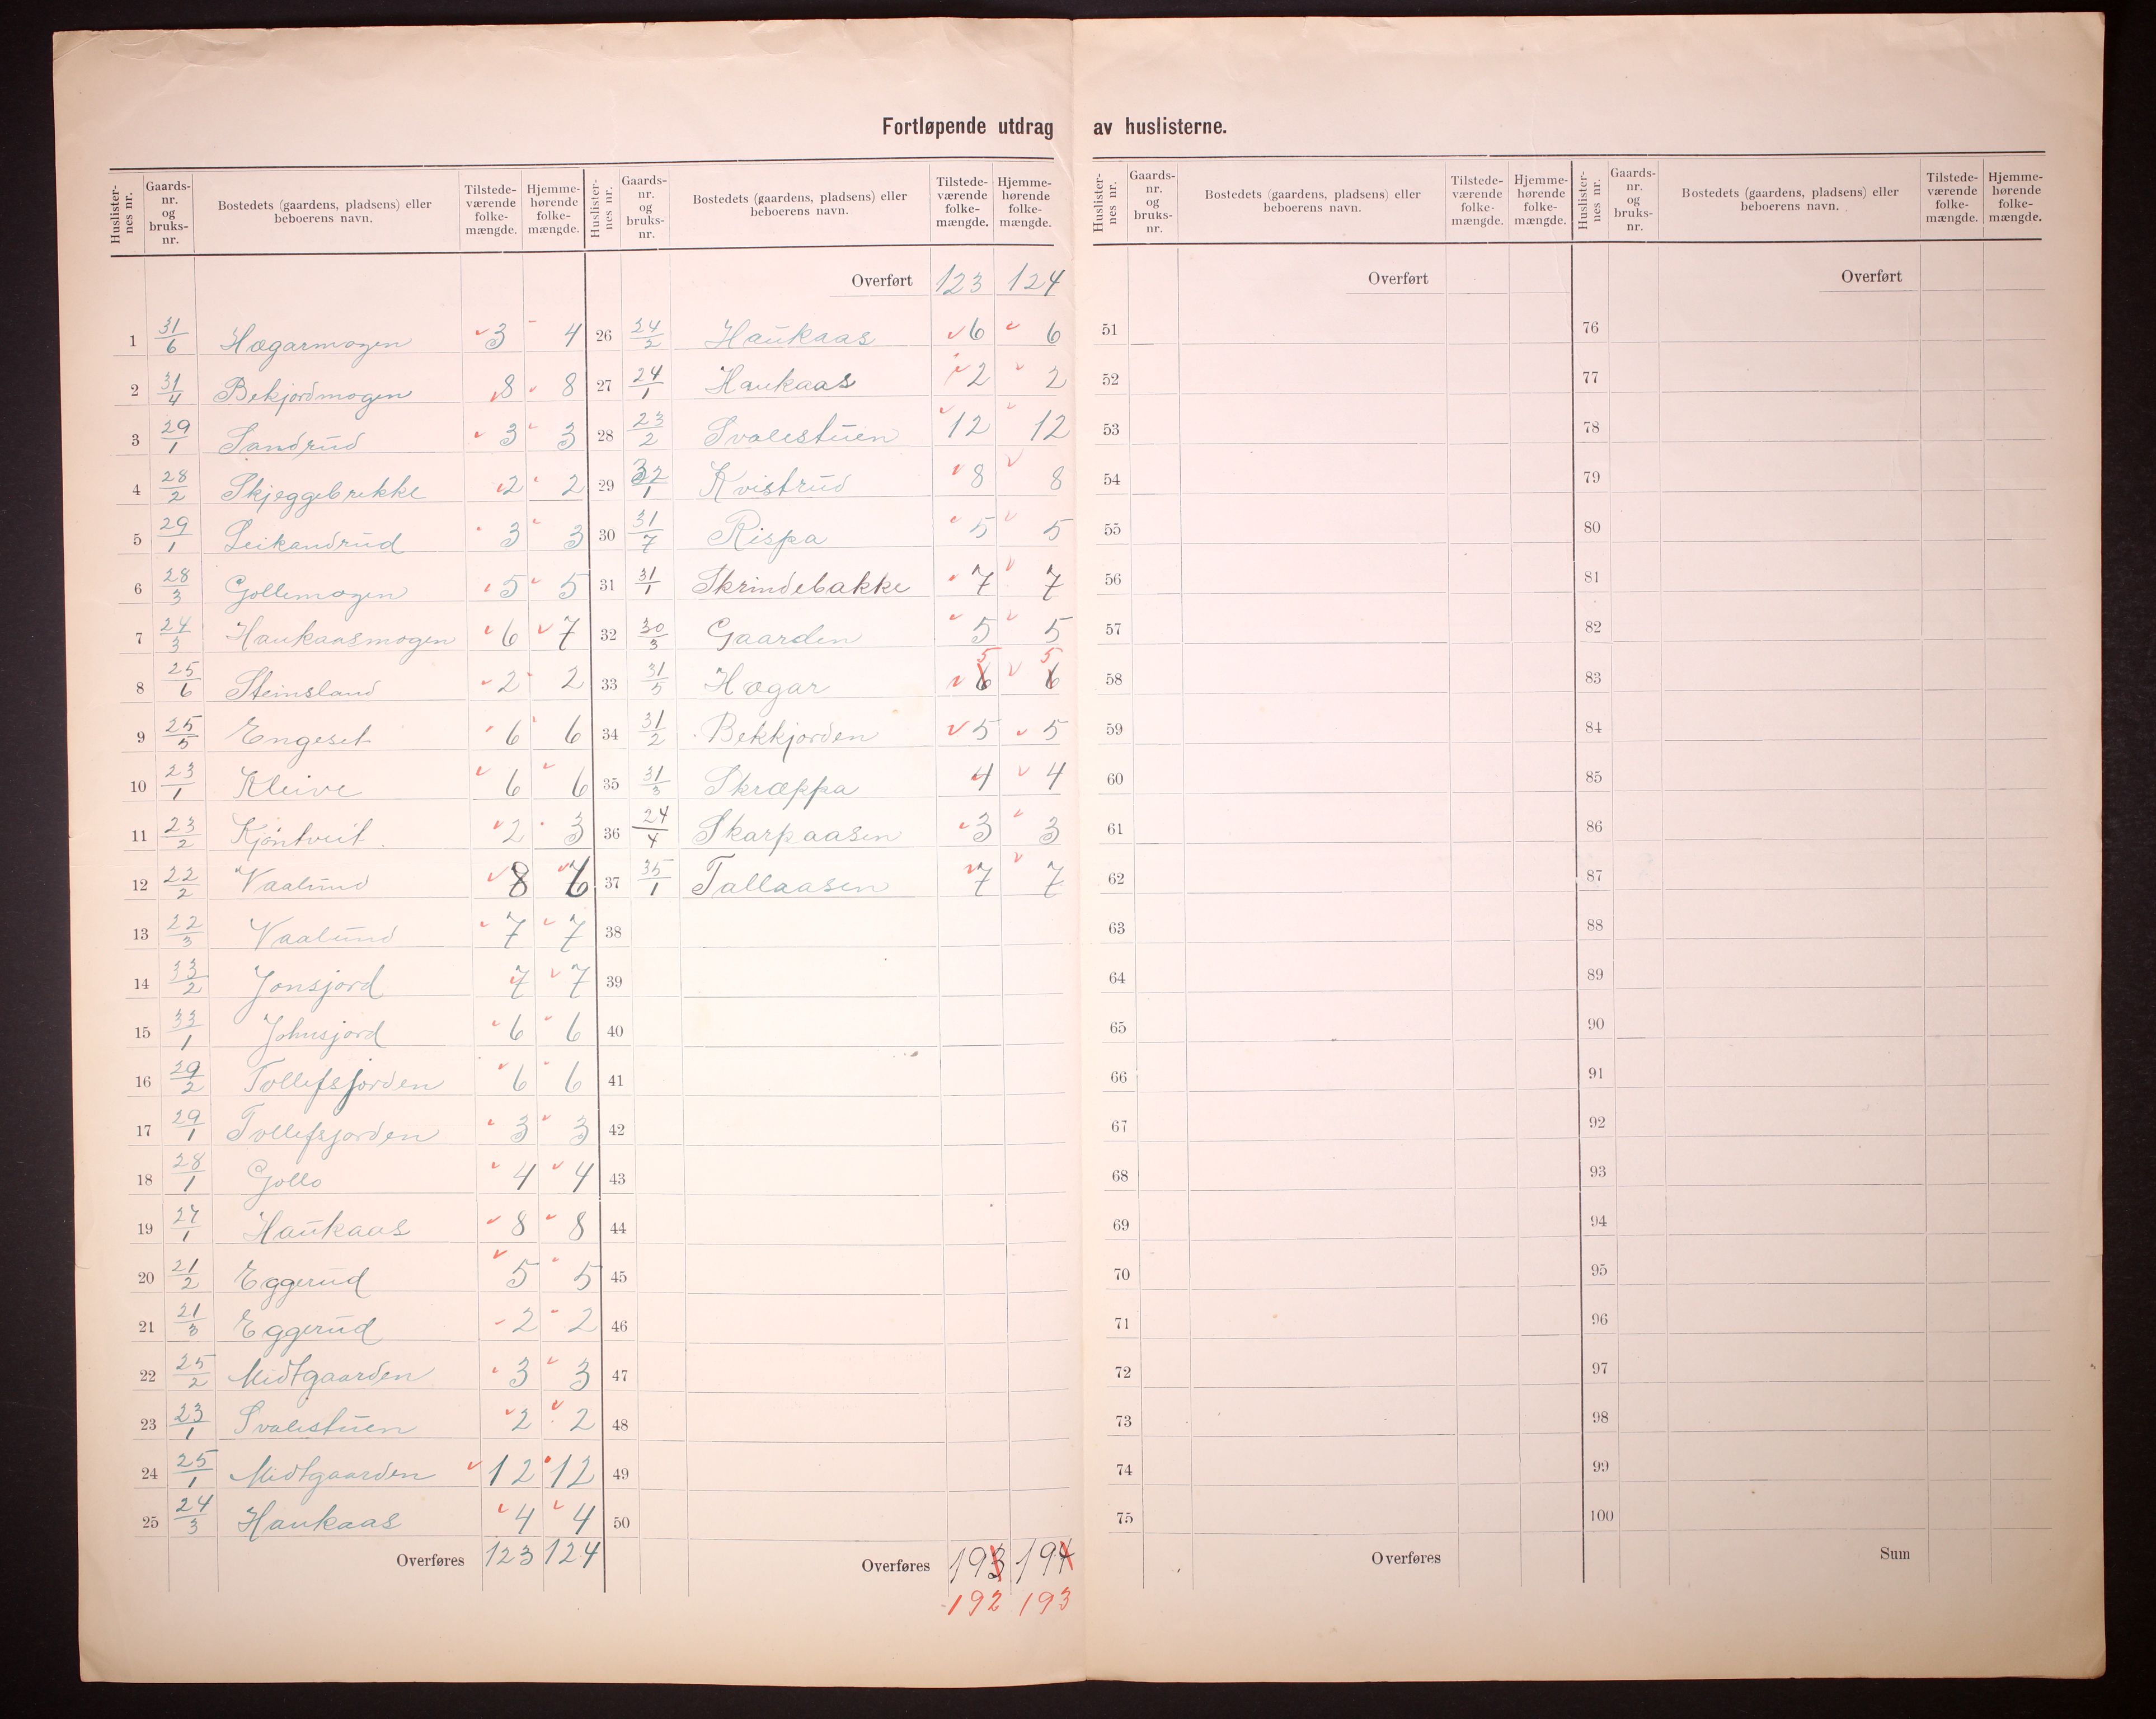 Fortløpende utdrag av huslisterne.
Huslisternes nr. Gaards-nr. og bruks-nr. Bostedets (gaardens, pladsens) eller beboerens navn. Tilstedeværende folkemængde. Hjemmehørende folkemængde.
1 31/6 Hægarmogen 3 4
2 31/4 Bekjordmogen 8 8
3 29/1 Sandrud 3 3
4 28/2 Skjeggebrekke 2 2
5 29/1 Leikandrud 3 3
6 28/3 Gollemogen 5 5
7 24/3 Haukaasmogen 6 7
8 25/6 Steinsland 2 2
9 25/5 Engeset 6 6
10 23/1 Kleive 6 6
11 23/2 Kjøntveit 2 3
12 22/2 Vaalund 8
13 22/3 Vaalund 7 7
14 33/2 Jonsjord 7 7
15 33/1 Johnsjord 6 6
16 29/2 Tollefsjorden 6 6
17 29/1 Tollefsjorden 3 3
18 28/1 Gollo 4 4
19 27/1 Haukaas 8 8
20 21/2 Eggerud 5 5
21 21/3 Eggerud 2 2
22 25/2 Midtgaarden 3 3
23 23/1 Svalestuen 2 2
24 25/1 Midtgaarden 12 12
25 24/3 Haukaas 4 4
Overføres 123 124
Huslisternes nr. Gaards-nr. og bruks-nr. Bostedets (gaardens, pladsens) eller beboerens navn. Tilstedeværende folkemængde. Hjemmehørende folkemængde.
Overført 123 124
26 24/2 Haukaas 6 6
27 24/1 Haukaas 2 2
28 23/2 Svalestuen 12 12
29 32/1 Kvistrud 8 8
30 31/7 Rispa 5 5
31 31/1 Skrindebakke 7 7
32 30/3 Gaarden 5 5
33 31/5 Hægar 6 5 6 5
34 31/2 Bekkjorden 5 5
35 31/3 Skræppa 4 4
36 24/4 Skarpaasen 3 3
37 35/1 Tallaasen 7 7
38
39
40
41
42
43
44
45
46
47
48
49
50
Overføres 193 194
192 193
Huslisternes nr. Gaards-nr. og bruks-nr. Bostedets (gaardens, pladsens) eller beboerens navn. Tilstedeværende folkemængde. Hjemmehørende folkemængde.
Overført
51
52
53
54
55
56
57
58
59
60
61
62
63
64
65
66
67
68
69
70
71
72
73
74
75
Overføres
Huslisternes nr. Gaards-nr. og bruks-nr. Bostedets (gaardens, pladsens) eller beboerens navn. Tilstedeværende folkemængde. Hjemmehørende folkemængde.
Overført
76
77
78
79
80
81
82
83
84
85
86
87
88
89
90
91
92
93
94
95
96
97
98
99
100
Sum